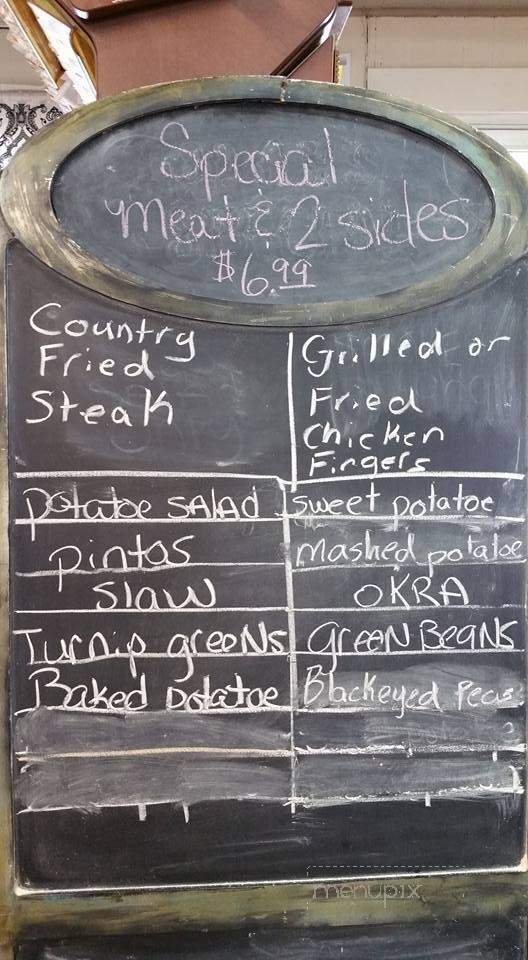 Special
meat & 2 sides
$6.99
Country
Fried
Steak
Grilled or
Fried
Chicken
Fingers
potatoe SALAD
sweet potatoe
pintos
mashed potatoe
slaw
OKRA
Turnip greeNs
GReeN BeaNs
Baked potatoe
Blackeyed Peas
menupix